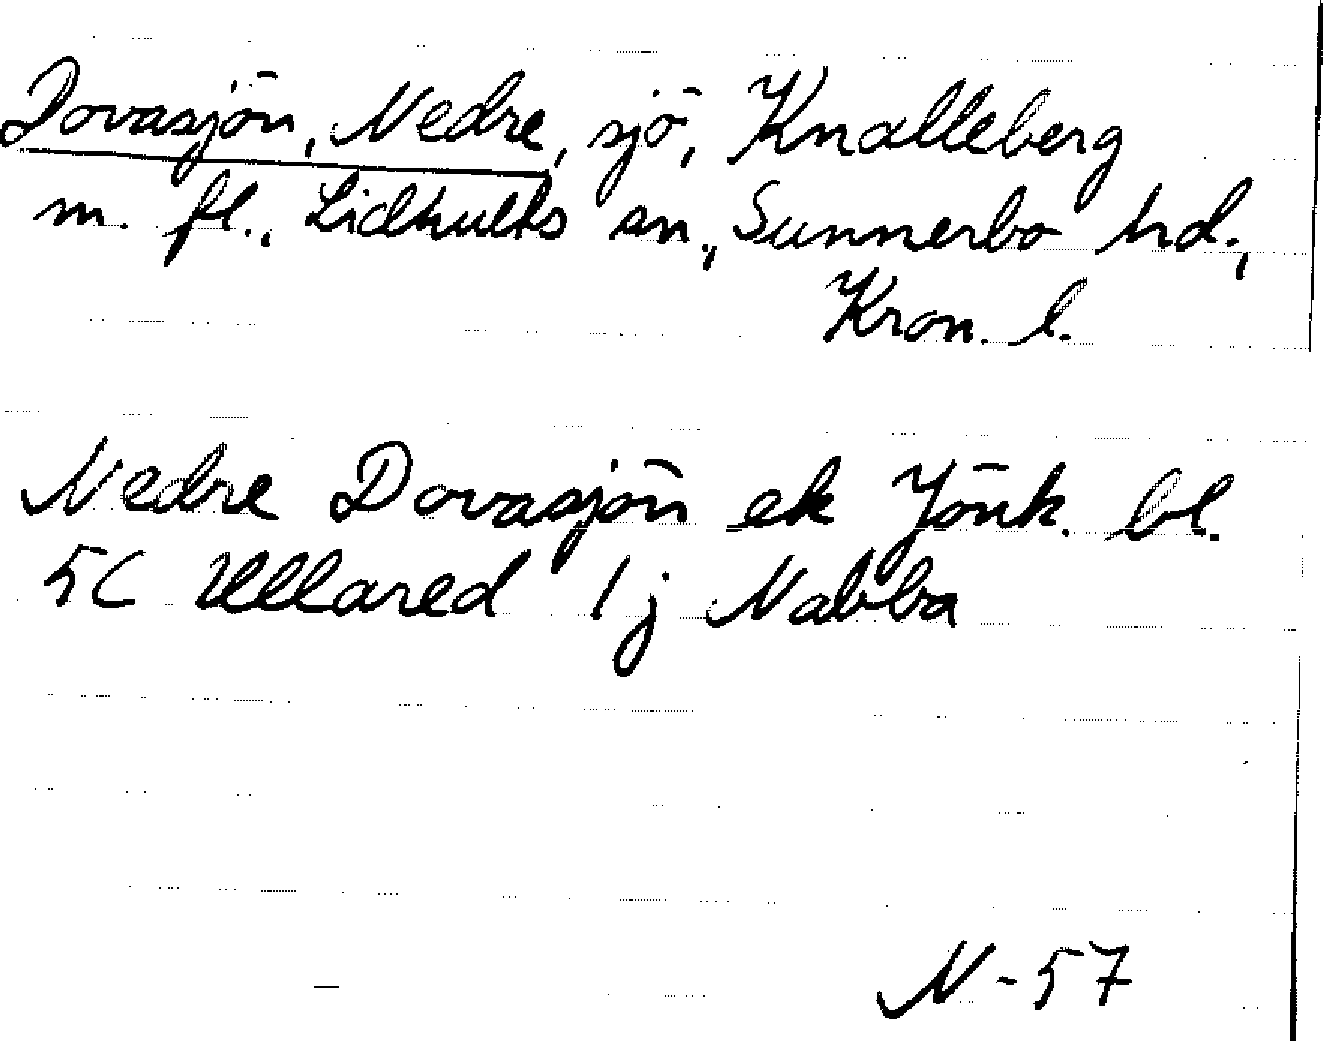 Dovasjön, Nedre, sjö, Knalleberg
m. fl., Lidhults sn., Sunnerbo hd.,
Kron. l.
Nedre Dovasjön ek Jönk. bl.
5C Ullared 1j Nabba
N-57